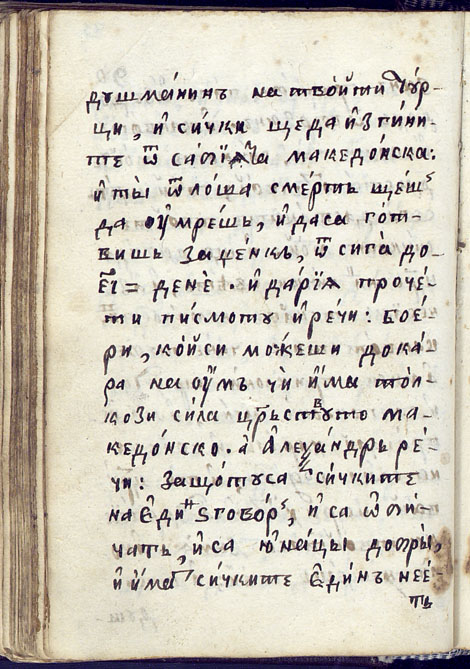 душма́нинъ на тво́йти Ту́р-
щи, и҆ си́чки щеда и҆зпи́ни-
те ѿ саби́ѧта македо́нска:
и҆ ты̀ ѿ ло́ша сме́рть ще́шъ
да оу҆мре́шь, и҆ даса го́т-
вишь за ме́нкъ, ѿ сига̀ до-
е҃і = денѐ. и҆ да́рїѧ проче́-
ти пи́смоту и҆ ре́чи: Бое́-
ри, ко́йси мо́жеши дока́-
ра на оу҆мъ чѝ и҆́ма то́л-
кози си́ла цр҃ствуто ма-
кедо́нско. а҆ А҆леѯа́ндръ ре́-
чи: защо́туса си́чките
на е҆ди́нъ зговоръ, и҆ са ѿли-
чать, и҆ са ю҆на́цы добры̀,
и҆ и҆́мат си́чките е҆ди́нъ нее҆-
тъ